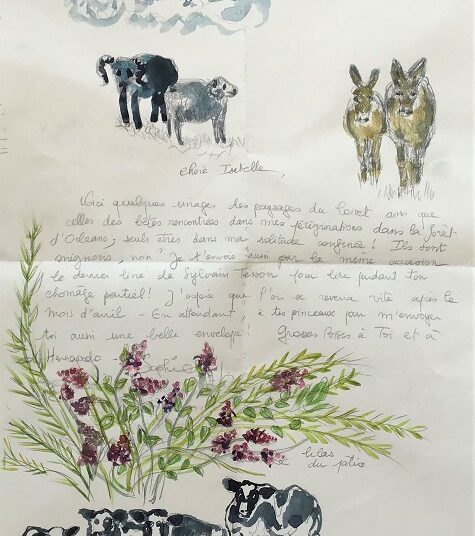 chère Isabelle,
Voici quelques images des paysages du Loiret ainsi que
celles des bêtes rencontrées dans mes pérégrinations dans la forêt
d'Orléans, seuls êtres dans ma solitude confinée ! Ils sont
mignons, non ? Je t'envoie aussi par la même occasion
le dernier livre de Sylvain Tesson pour lire pendant ton
chômage partiel ! J'espère que l'on se reverra vite après le
mois d'avril - En attendant, à tes pinceaux pour m'envoyer
toi aussi une belle enveloppe ! Grosses Bises à Toi et à
Hernando - Sophie
lilas
du patio